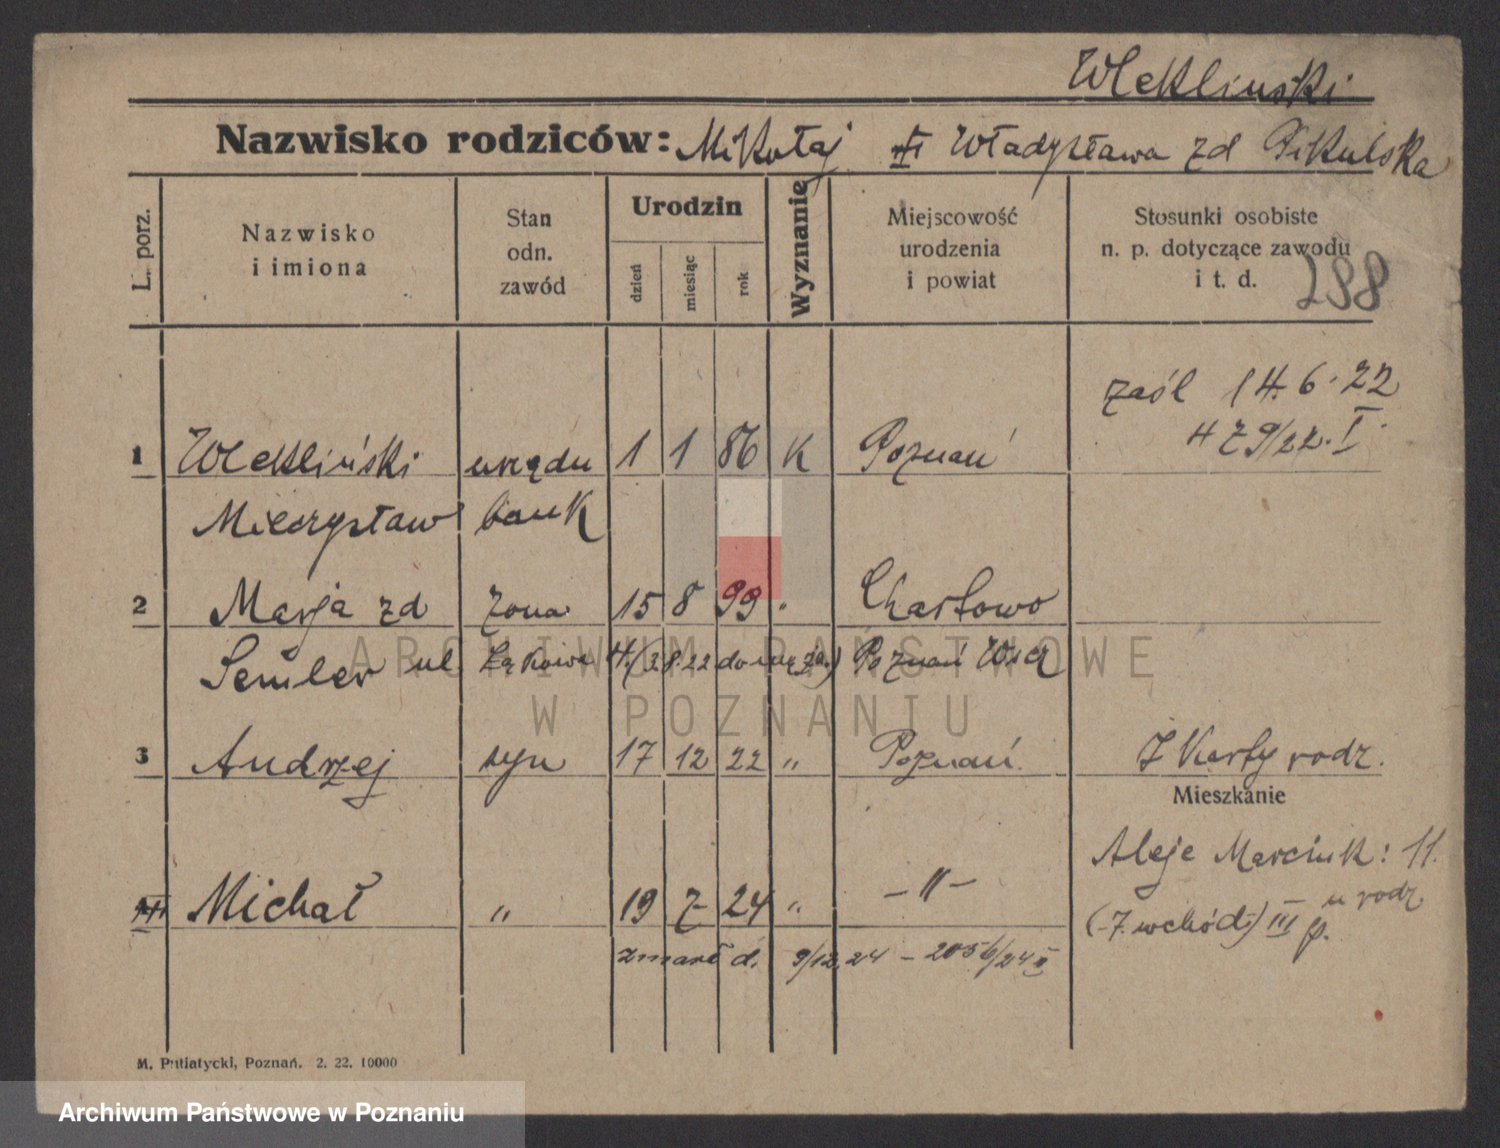 Wleklinski
Nazwisko rodziców: Mikołaj i Władysława zd Pikulska
L. porz.
Nazwisko
i imiona
Stan
odn.
zawód
Urodzin
dzień
miesiąc
rok
Wyznanie
Miejscowość
urodzenia
i powiat
Stosunki osobiste
n. p. dotyczące zawodu
i t. d.
288
zaśl 14.6.22
479/22.I.
1 Wlekliński urzędn 1 1 86 K Poznań
Mieczysław bank
2 Marja zd żona 15 8 99 " Chartowo
Semler ul. Łąkowa 4. (3.8.22 do męża) Poznań Wsch
3 Andrzej syn 17 12 22 " Poznań Z Karty rodz.
Mieszkanie
Aleje Marcink: 11.
4 Michał " 19 7 24 " -"-
u rodz.
(-7. wchód-) III p.
zmarł d. 9/12.24 - 2056/24 II
M. Putiatycki, Poznań. 2. 22. 10000
ARCHIWUM PAŃSTWOWE
W POZNANIU
Archiwum Państwowe w Poznaniu